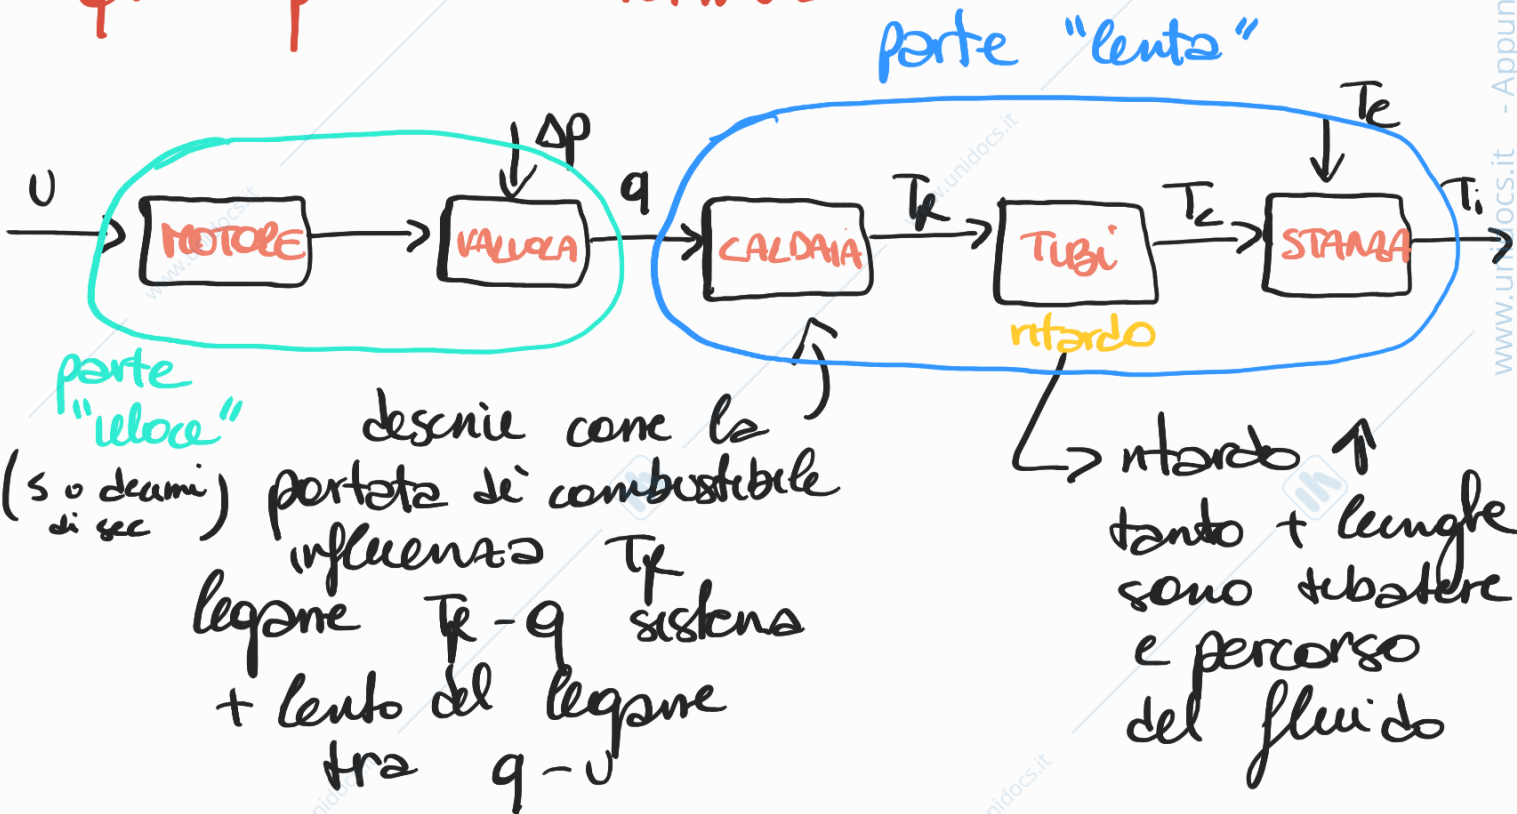 parte "lenta"
Δp
Te
U
q
TK
Tc
Ti
MOTORE
VALVOLA
CALDAIA
TUBi
STANZA
ritardo
parte
"veloce"
(s o decimi
di sec)
descrive come la
portata di combustibile
influenza TK
legame TK - q sistema
+ lento del legame
tra q - U
ritardo ↑
tanto + lunghe
sono tubature
e percorso
del fluido
www.unidocs.it - Appun
www.unidocs.it
www.unidocs.it